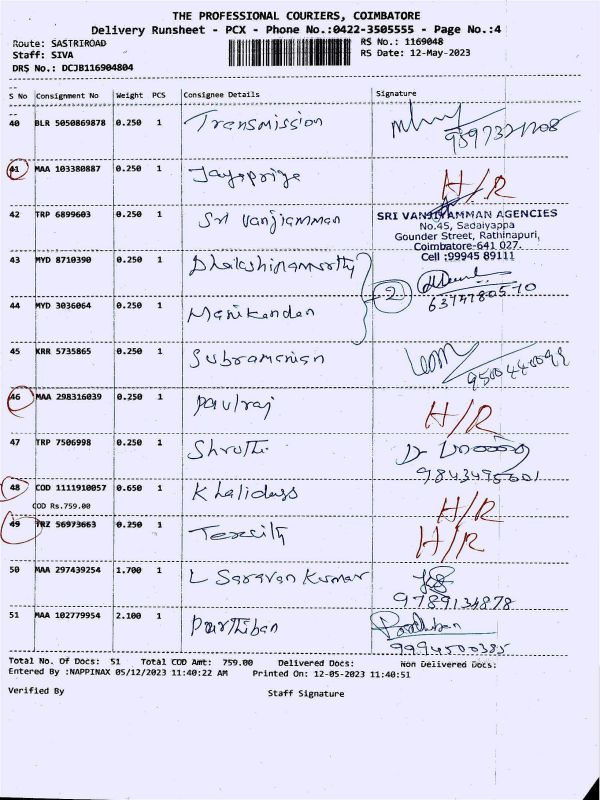 THE PROFESSIONAL COURIERS, COIMBATORE
Delivery Runsheet - PCX - Phone No.:0422-3505555 - Page No.:4
Route: SASTRIROAD RS No.: 1169048
Staff: SIVA RS Date: 12-May-2023
DRS No.: DCJB116904804
S No Consignment No Weight PCS Consignee Details Signature
40 BLR 5050869878 0.250 1 Transmission
41 MAA 103380887 0.250 1 Jayapriya H/R
42 TRP 6899603 0.250 1 Sri Vanjiamman
SRI VANJIYAMMAN AGENCIES
No.45, Sadaiyappa
Gounder Street, Rathinapuri,
Coimbatore-641 027.
Cell :99945 89111
43 MYD 8710390 0.250 1 Dhakshinamoorthy
2
6374780570
44 MYD 3036064 0.250 1 Manikandan
45 KRR 5735865 0.250 1 Subramanian
46 MAA 298316039 0.250 1 Paulraj H/R
47 TRP 7506998 0.250 1 Shruthi
48 COD 1111910057 0.650 1 Khalidass H/R
COD Rs.759.00
49 TRZ 56973663 0.250 1 H/R
50 MAA 297439254 1.700 1 L Saravan Kumar
9789134878
51 MAA 102779954 2.100 1 Parthiban Parthiban
9994500385
Total No. Of Docs: 51 Total COD Amt: 759.00 Delivered Docs: Non Delivered Docs:
Entered By :NAPPINAX 05/12/2023 11:40:22 AM Printed On: 12-05-2023 11:40:51
Verified By Staff Signature